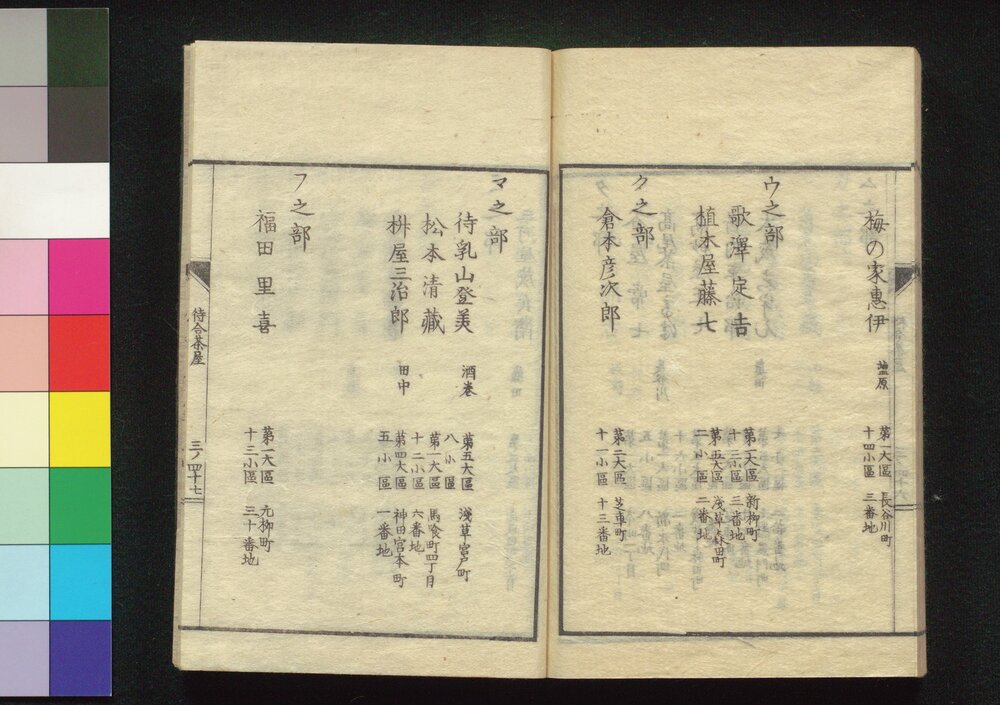 梅の家惠伊
塩原
第一大區 長谷川町
十四小區 三番地
ウ之部
歌澤定吉
第一大區 新柳町
十三小區 三番地
植木屋藤七
第五大區 浅草森田町
二小區 二番地
ク之部
倉本彦次郎
第二大區 芝車町
十一小區 十三番地
マ之部
待乳山登美
酒巻
第五大區 浅草宮戸町
八小區
松本清藏
第一大區 馬喰町四丁目
十二小區 六番地
桝屋三治郎
田中
第四大區 神田宮本町
五小區 一番地
フ之部
福田里喜
第一大區 元柳町
十三小區 三十番地
待合茶屋
三ノ四十七